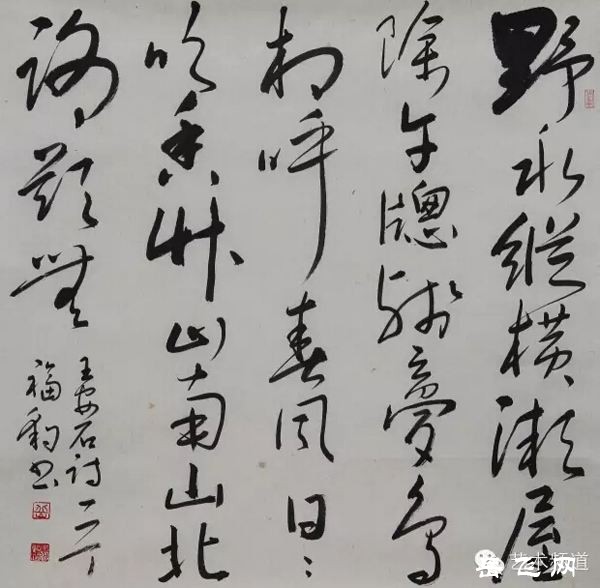 野水縱橫漱屋
除午牕殘夢鳥
相呼春風日〻
吹香艸山南山北
路欲無
王安石詩一首
福豹書
艺术频道
岳飞网